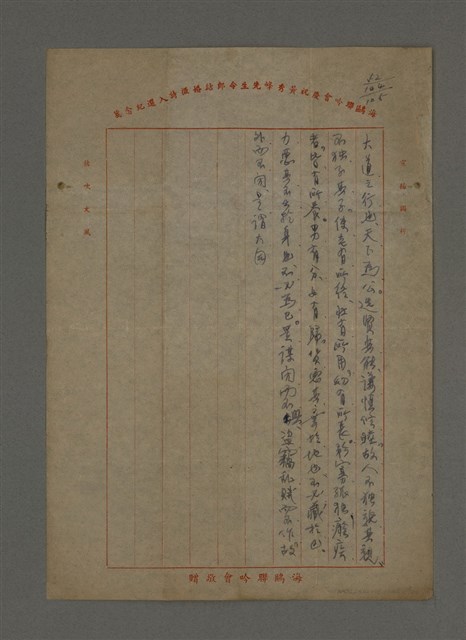 海鷗聯吟會慶祝黃秀峰先生令郎結婚徵詩入選紀念箋
大道之行也天下為公選賢與能講信修睦故人不獨親其親
不獨子其子使老有所終壯有所用幼有所長矜寡孤獨廢疾
者皆有所養男有分女有歸貨惡其棄於地也不必藏於己
力惡其不出於身也不必為己是謀閉而不興盜竊亂賊而不作故
外而不閉是謂大同
海鷗聯吟會敬贈